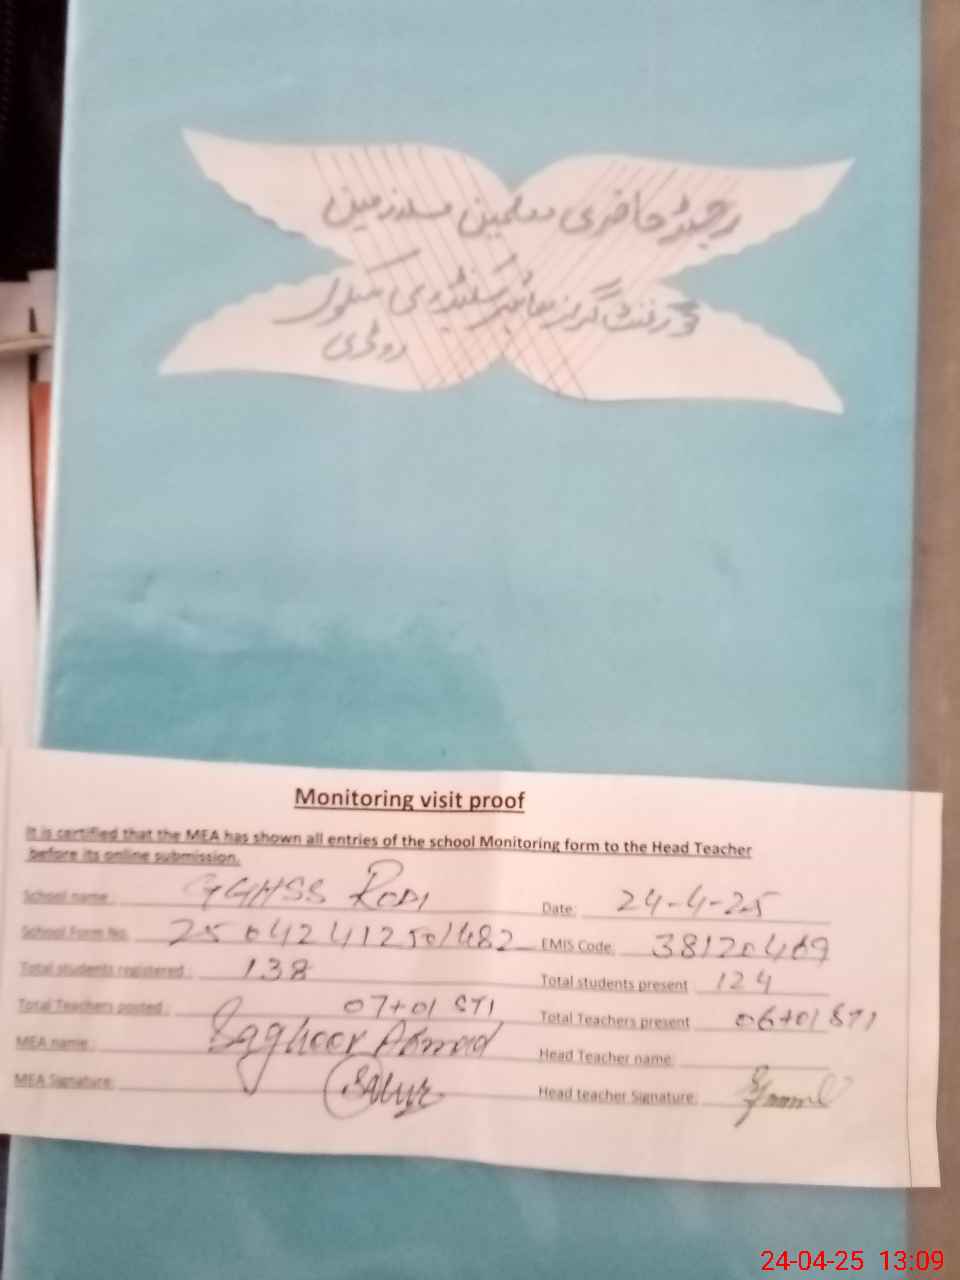 رجسٹر حاضری معلمین ملازمین
گورنمنٹ گرلز ہائیر سیکنڈری سکول
روڈی
Monitoring visit proof
It is certified that the MEA has shown all entries of the school Monitoring form to the Head Teacher
before its online submission.
School name: GGHSS Rodi Date: 24-4-25
School Form No. 25042412501482 EMIS Code: 38120469
Total students registered: 138 Total students present 124
Total Teachers posted: 07+01 STI Total Teachers present 06+01 STI
MEA name: Sagheer Ahmad Head Teacher name:
MEA Signature: Head teacher Signature:
24-04-25 13:09